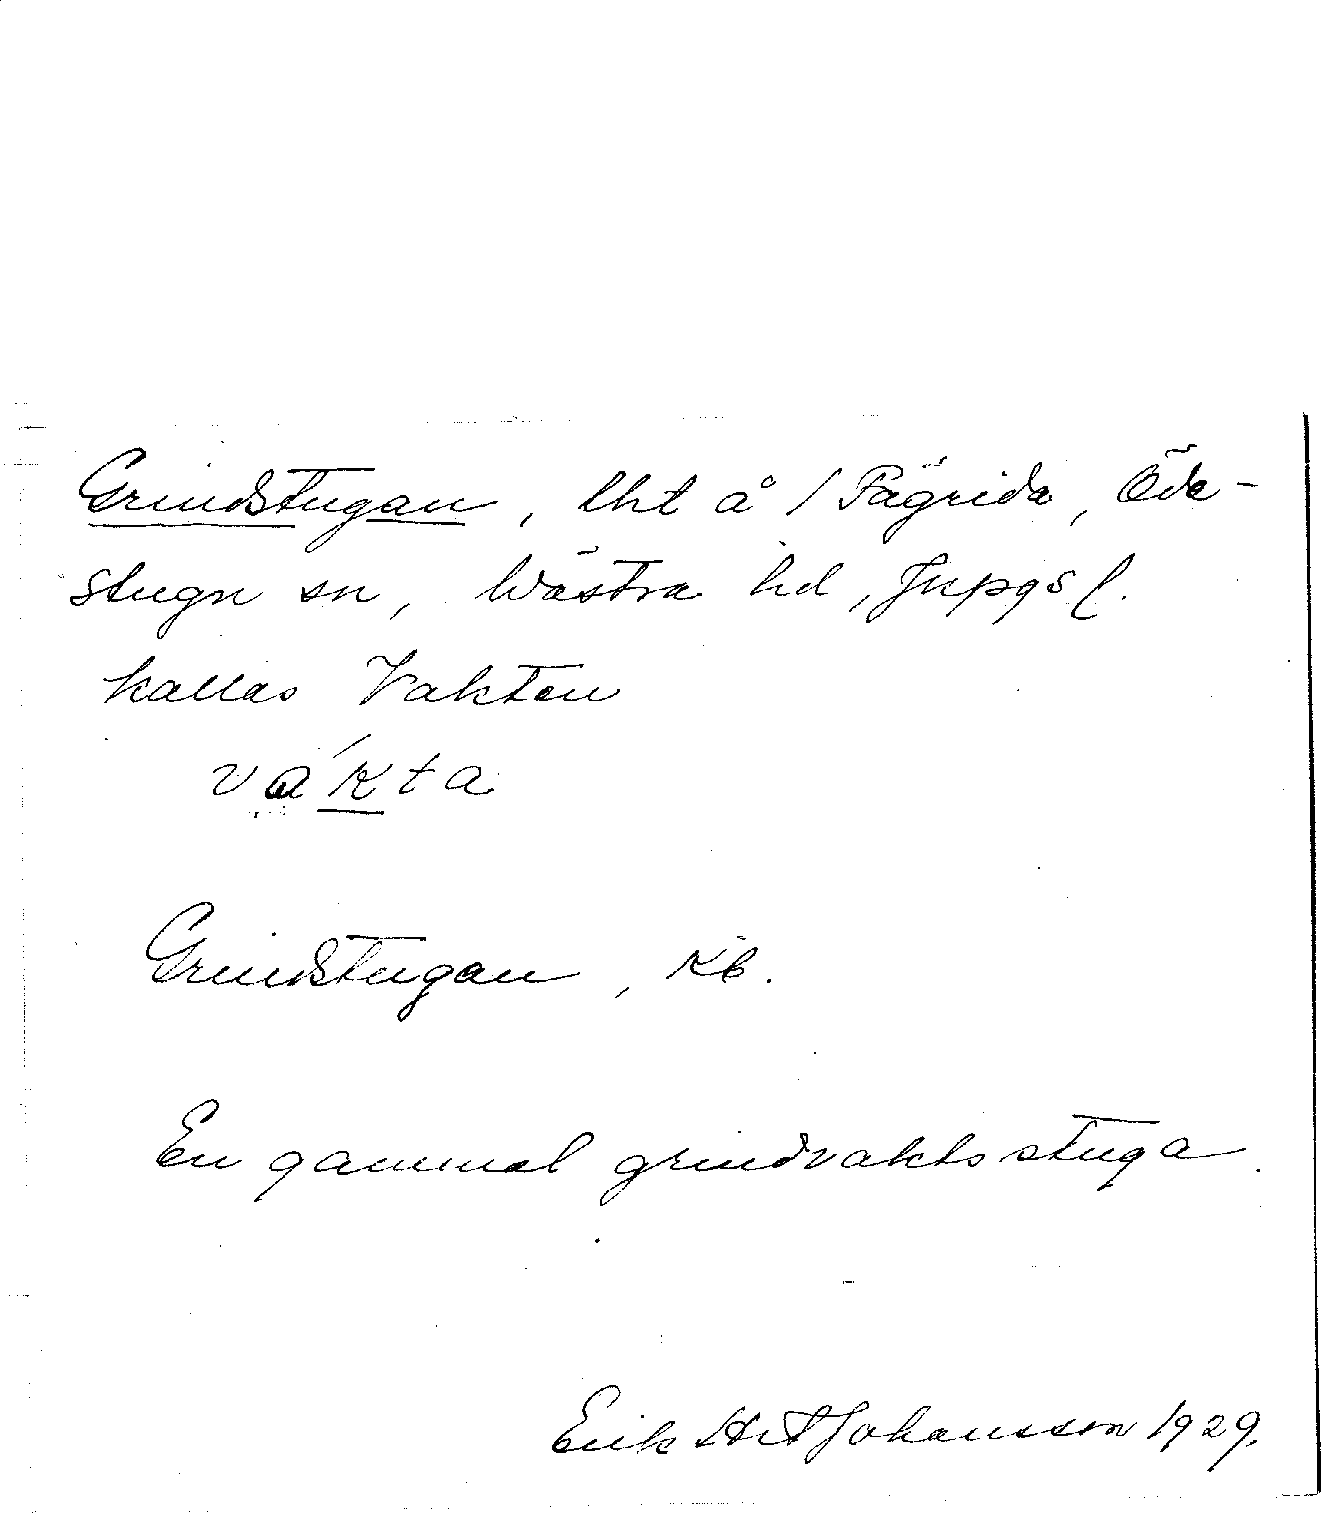 Grindstugan, lht å / Fägrida, Öde-
stugu sn, Västra hd, Jnpgs l.
kallas Vakten
vakta
Grindstugan, Kb.
En gammal grindvaktsstuga.
Erik Johansson 1929.